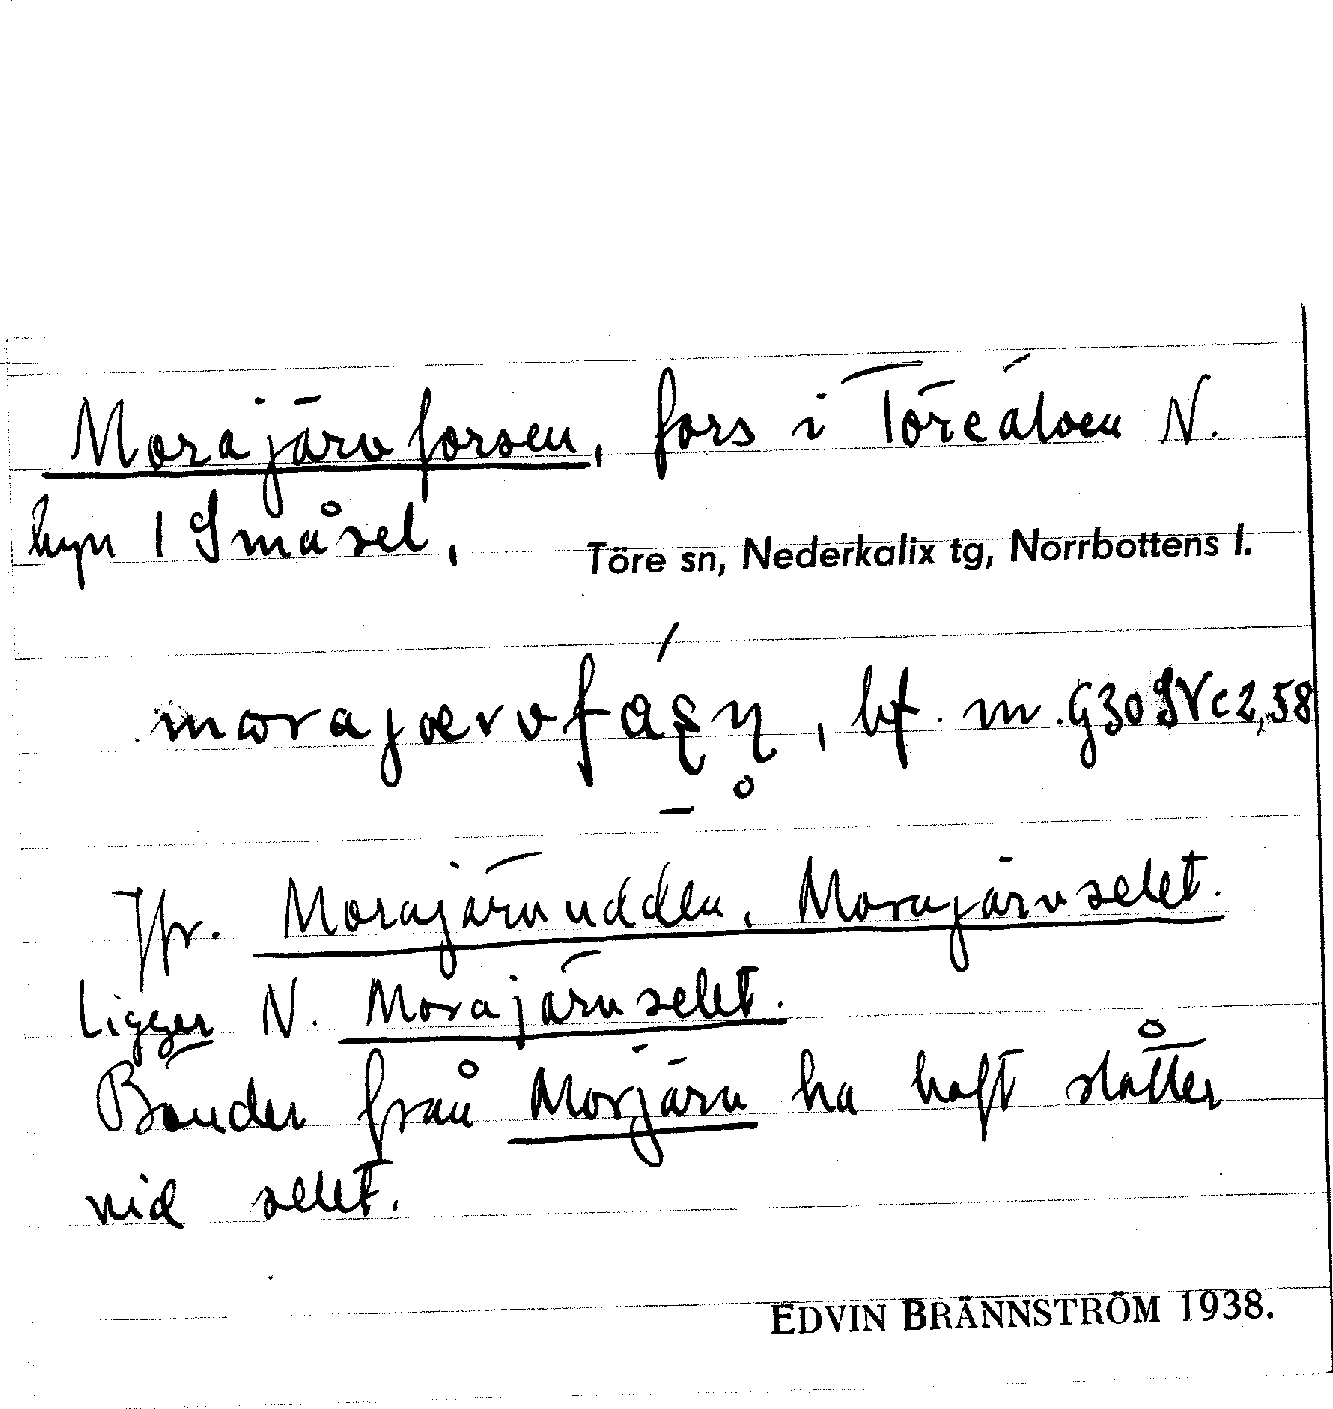 Morajärvforsen, fors i Töreälven N.
byn 1 Småsel,
Töre sn, Nederkalix tg, Norrbottens l.
bf. m. G30 SVc2,58
Jfr. Morajärvudden, Morajärvselet.
Ligger N. Morajärvselet.
Bönder från Morjärv ha haft slåtter
vid selet.
EDVIN BRÄNNSTRÖM 1938.